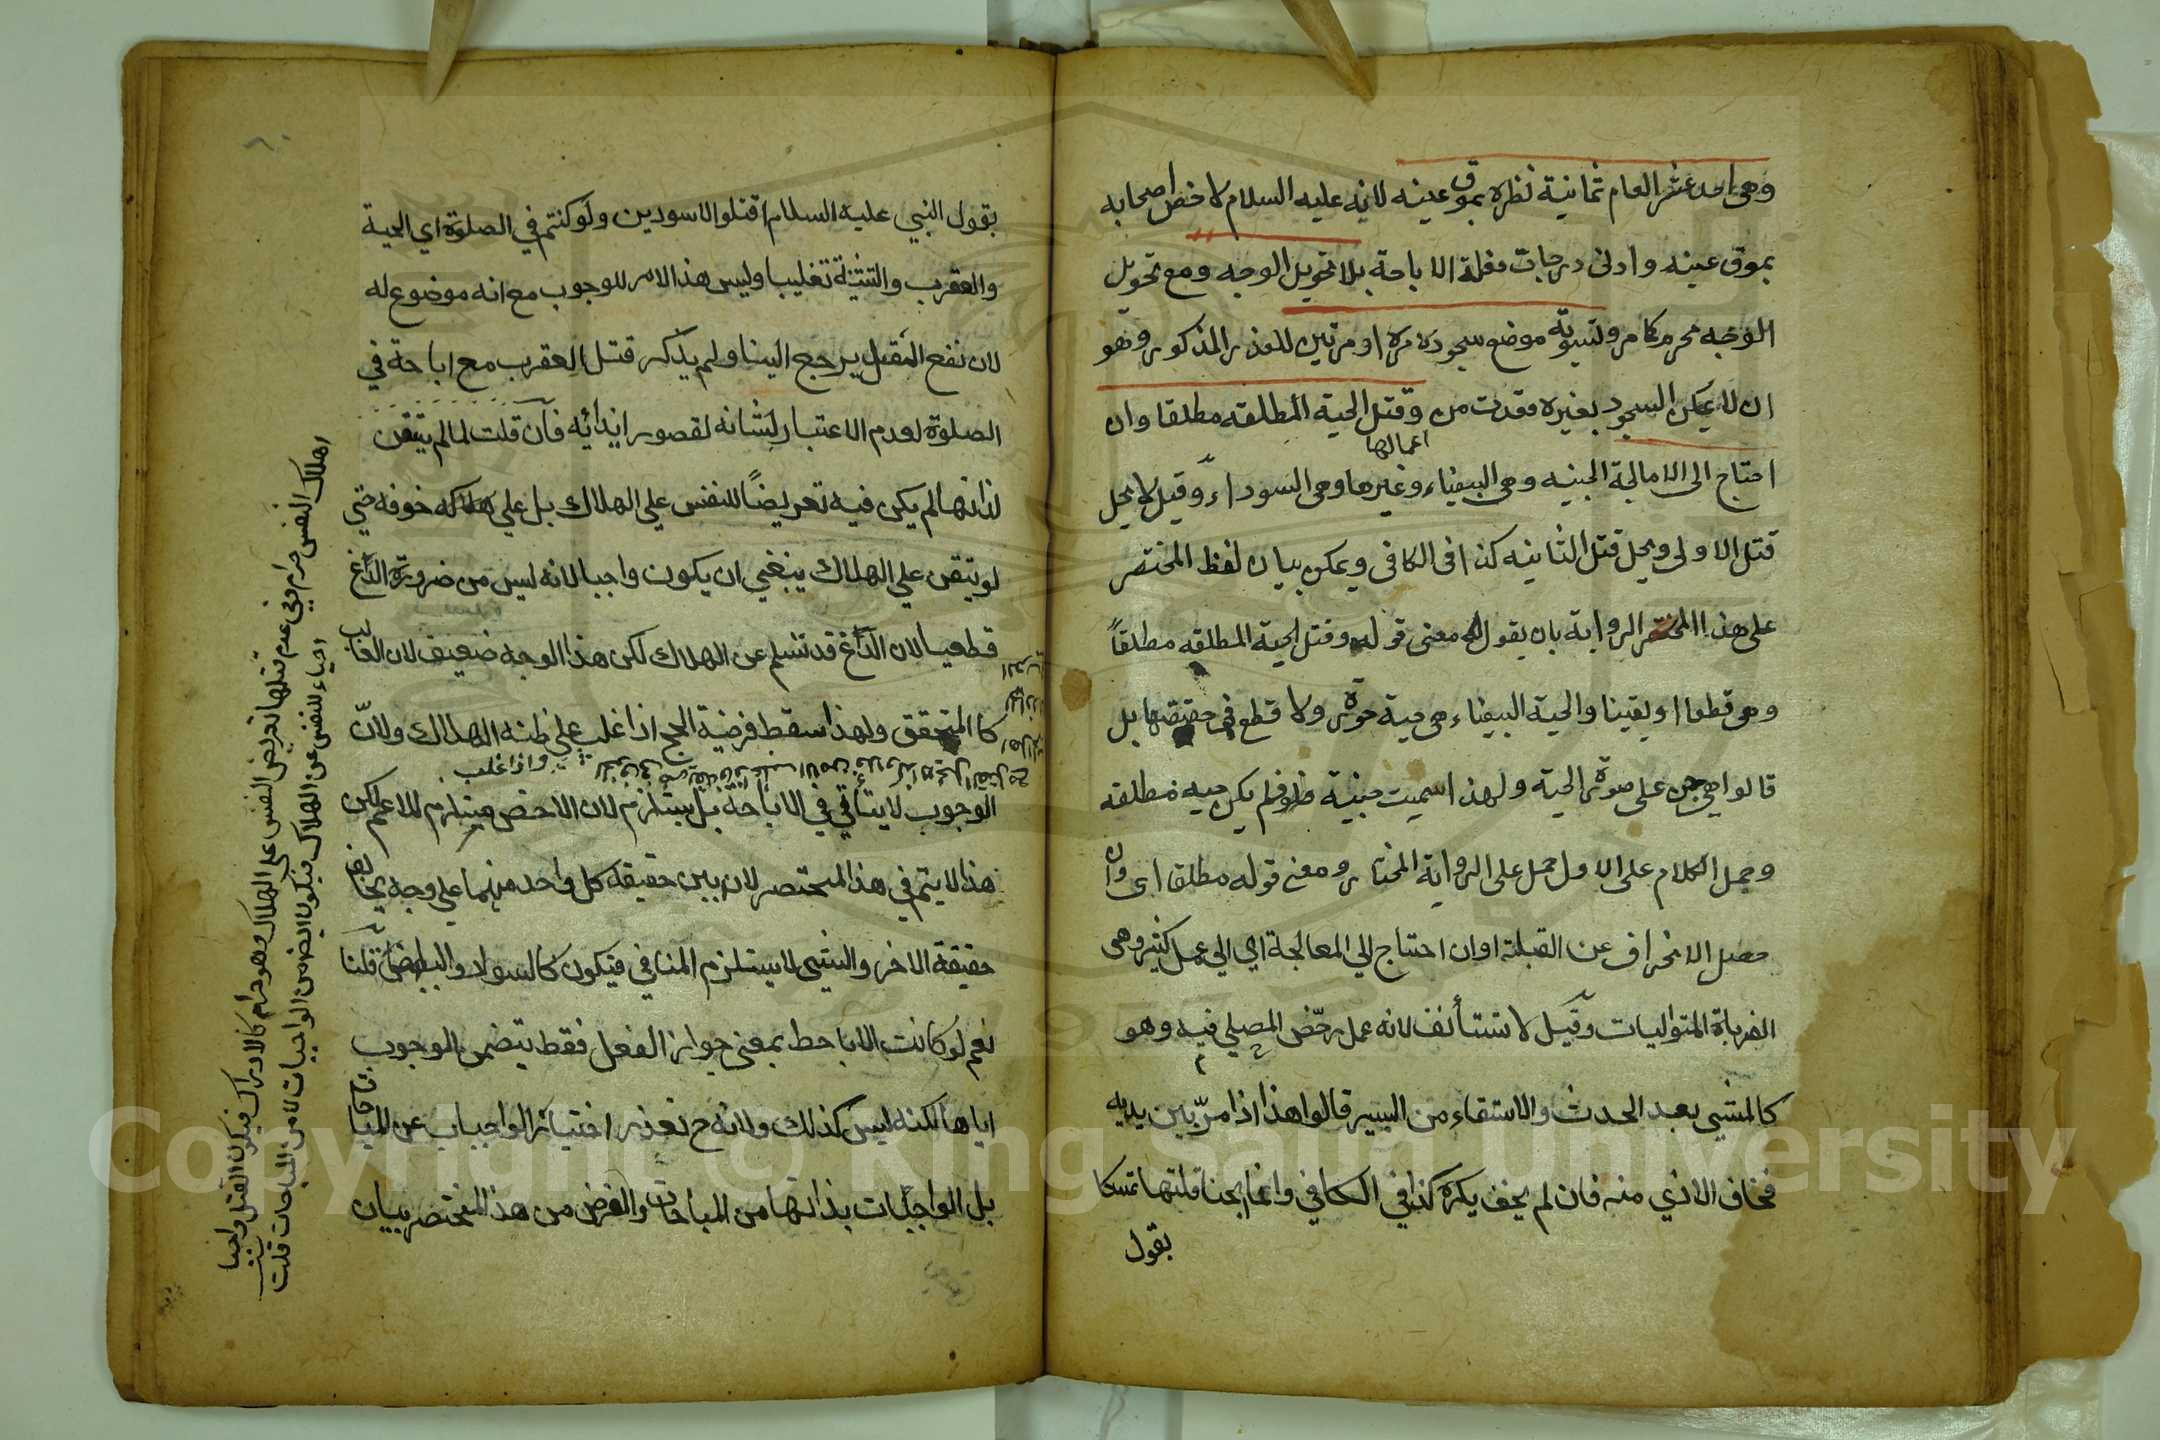 وهى احد عشر العام ثمانية نظره بموق عينه لانه عليه السلام لاخص اصحابه
بموق عينه وادنى درجات فعله الاباحة بلا تحويل الوجه ومع تحويل
الوجه محرم كما مر وتسوية موضع سجوده مرة او مرتين للعذر المذكور وهو
ان لا يمكن السجود بغيره وقدت من وقتل الحية المطلقه مطلقا وان
احتاج الى المعالجة الجنيه وهى البيضاء وغيرها وهى السوداء وقيل لا يحل
اعمالها
قتل الاولى ويحل قتل الثانيه كذا فى الكافى ويمكن بيان لفظ المختصر
على هذا الرواية بان يقول معنى قوله وقتل الحية المطلقه مطلقاً
وهو قطعا او يقينا والحية البيضاء هى حية صورة ولا قطع فى حقيقتها بل
قالوا هى جن على صورة الحية ولهذا سميت جنية فلم يكن حيه مطلقه
وحمل الكلام على الاول حمل على الرواية المختار ومعنى قوله مطلقا اى وان
حصل الانحراف عن القبلة اوان احتاج الي المعالجة اي الي عمل كثير وهى
الضرباة المتواليات وقيل لا تستأنف لانه عمل رخّص المصلي فيه وهو
كالمشي بعد الحدث والاستقاء من البير قالوا هذا اذا مرّ بين يديه
فخاف الاذي منه فان لم يخف يكره كذا في الكافي وانما ابحنا قتلها تمسكا
بقول
بقول النبي عليه السلام اقتلوا الاسودين ولو كنتم في الصلوة اي الحية
والعقرب والتثنية تغليبا وليس هذا الامر للوجوب مع انه موضوع له
لان نفع القتل يرجع الينا ولم يذكر قتل العقرب مع اباحة في
الصلوة لعدم الاعتبار لشانه لقصور ايذائه فان قلت لما لم يتيقن
لذاتها لم يكن فيه تعريضاً للنفس علي الهلاك بل علي هلاكه خوفه حتي
لو يتقن علي الهلاك ينبغي ان يكون واجبا لانه ليس من ضرورة الدّاغ
قطعيا لان الدّاغ قد تسلم عن الهلاك لكن هذا الوجه ضعيف لان الغالب
كالمتحقق ولهذا سقط فرضية الحج اذا غلب علي ظنه الهلاك ولانّ
واذا غلب
الوجوب لا ينافي في الاباحة بل يستلزم لان الاخص يستلزم للاعم لكن
هذا لا يتم في هذا المختصر لان بين حقيقة كل واحد منهما علي وجه يخالف
حقيقة الاخر والشيى لا يستلزم المنافي فيكون كالسواد والبياض قلنا
نعم لو كانت الاباحط بمعنى جواز الفعل فقط يتضمن الوجوب
اياها لكنه ليس كذلك ولانه ح تعذر اختياز الواجبات عن المباحات
بل الواجبات بذاتها من المباحات والغرض من هذا المختصر بيان
اهلاك النفس حرام وفي عدم قتلها تعريض النفس على الهلاك وهو حرام كالادراك فيكون القتل واجبا
احياء للنفس عن الهلاك فيكون القتل من الواجبات لا من المباحات قلت
Copyright © King Saud University